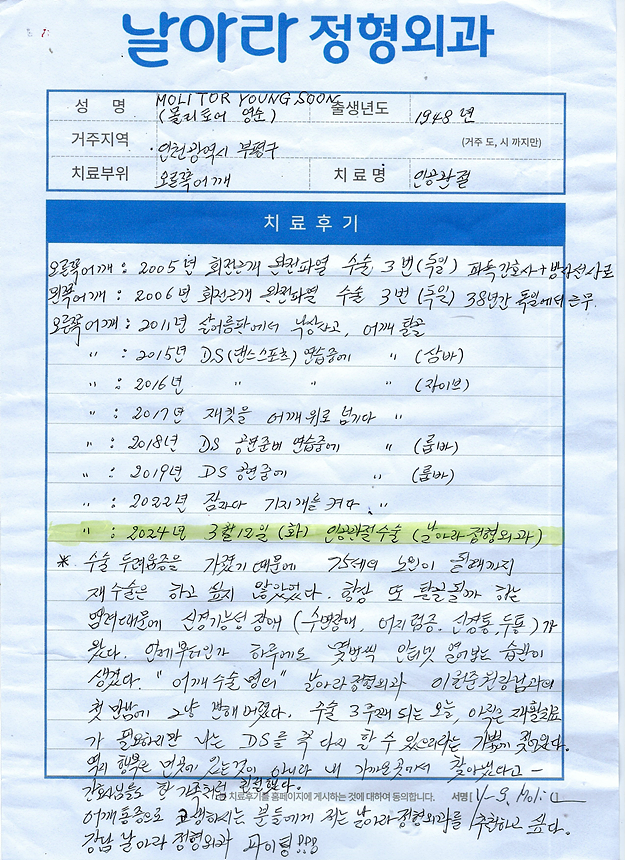 날아라 정형외과
성 명 MOLITOR YOUNG SOON (몰리토어 영순) 출생년도 1948년
거주지역 인천광역시 부평구 (거주 도, 시 까지만)
치료부위 오른쪽어깨 치료명 인공관절
치료후기
오른쪽어깨 : 2005년 회전근개 완전파열 수술 3번 (독일) 파독간호사+방사선사로
왼쪽어깨 : 2006년 회전근개 완전파열 수술 3번 (독일) 38년간 독일에서 근무.
오른쪽어깨 : 2011년 살어름판에서 낙상하고, 어깨 탈골
" : 2015년 DS(댄스스포츠) 연습중에 " (삼바)
" : 2016년 " " " (자이브)
" : 2017년 재킷을 어깨위로 넘기다 "
" : 2018년 DS 공연준비 연습중에 " (룸바)
" : 2019년 DS 공연중에 " (룸바)
" : 2022년 잠자다 기지개를 켜다 "
" : 2024년 3월 12일 (화) 인공관절수술 (날아라 정형외과)
* 수술 두려움증을 가졌기 때문에 75세의 노인이 될때까지
재수술은 하고 싶지 않았었다. 항상 또 탈골될까 하는
염려때문에 신경기능성 장애 (수면장애, 어지럼증, 신경통, 두통)가
왔다. 언제부터인가 하루에도 몇번씩 인터넷 열어보는 습관이
생겼다. "어깨수술 명의" 날아라 정형외과 원장님과의
첫 만남에 그냥 반해 버렸다. 수술 3주째 되는 오늘, 아직은 재활치료
가 필요하지만 나는 DS를 꼭 다시 할 수 있으리라는 기쁨에 젖어있다.
역시 행복은 먼곳에 있는것이 아니라 내 가까운곳에서 찾아냈다고 -
간호사님들도 한 가족처럼 친절했다.
치료후기를 홈페이지에 게시하는 것에 대하여 동의합니다. 서명 [ Y-S. Moli
어깨통증으로 고생하시는 분들에게 저는 날아라 정형외과를 추천하고 싶다.
강남 날아라 정형외과 파이팅!!!